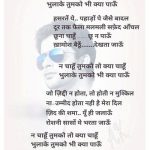 भुलाके तुमको भी क्या पाऊँ
हसरतें ये.. पहाड़ों पे जैसे बादल
दूर तक फैला मलमली सफ़ेद आँचल
छूना चाहूँ छू न पाऊँ
ख़ामोश बैठूँ......देखता जाऊँ
न चाहूँ तुमको तो क्या चाहूँ
भुलाके तुमको भी क्या पाऊँ
जो ज़िद्दी न होता, तो होती न मुश्किल
ना उम्मीद होता नही है मेरा दिल
ज़िद की शमा.. यूँ ही जलाऊँ
रोशनी सायों में भरता जाऊँ
न चाहूँ तुमको तो क्या चाहूँ
भुलाके तुमको भी क्या पाऊँ